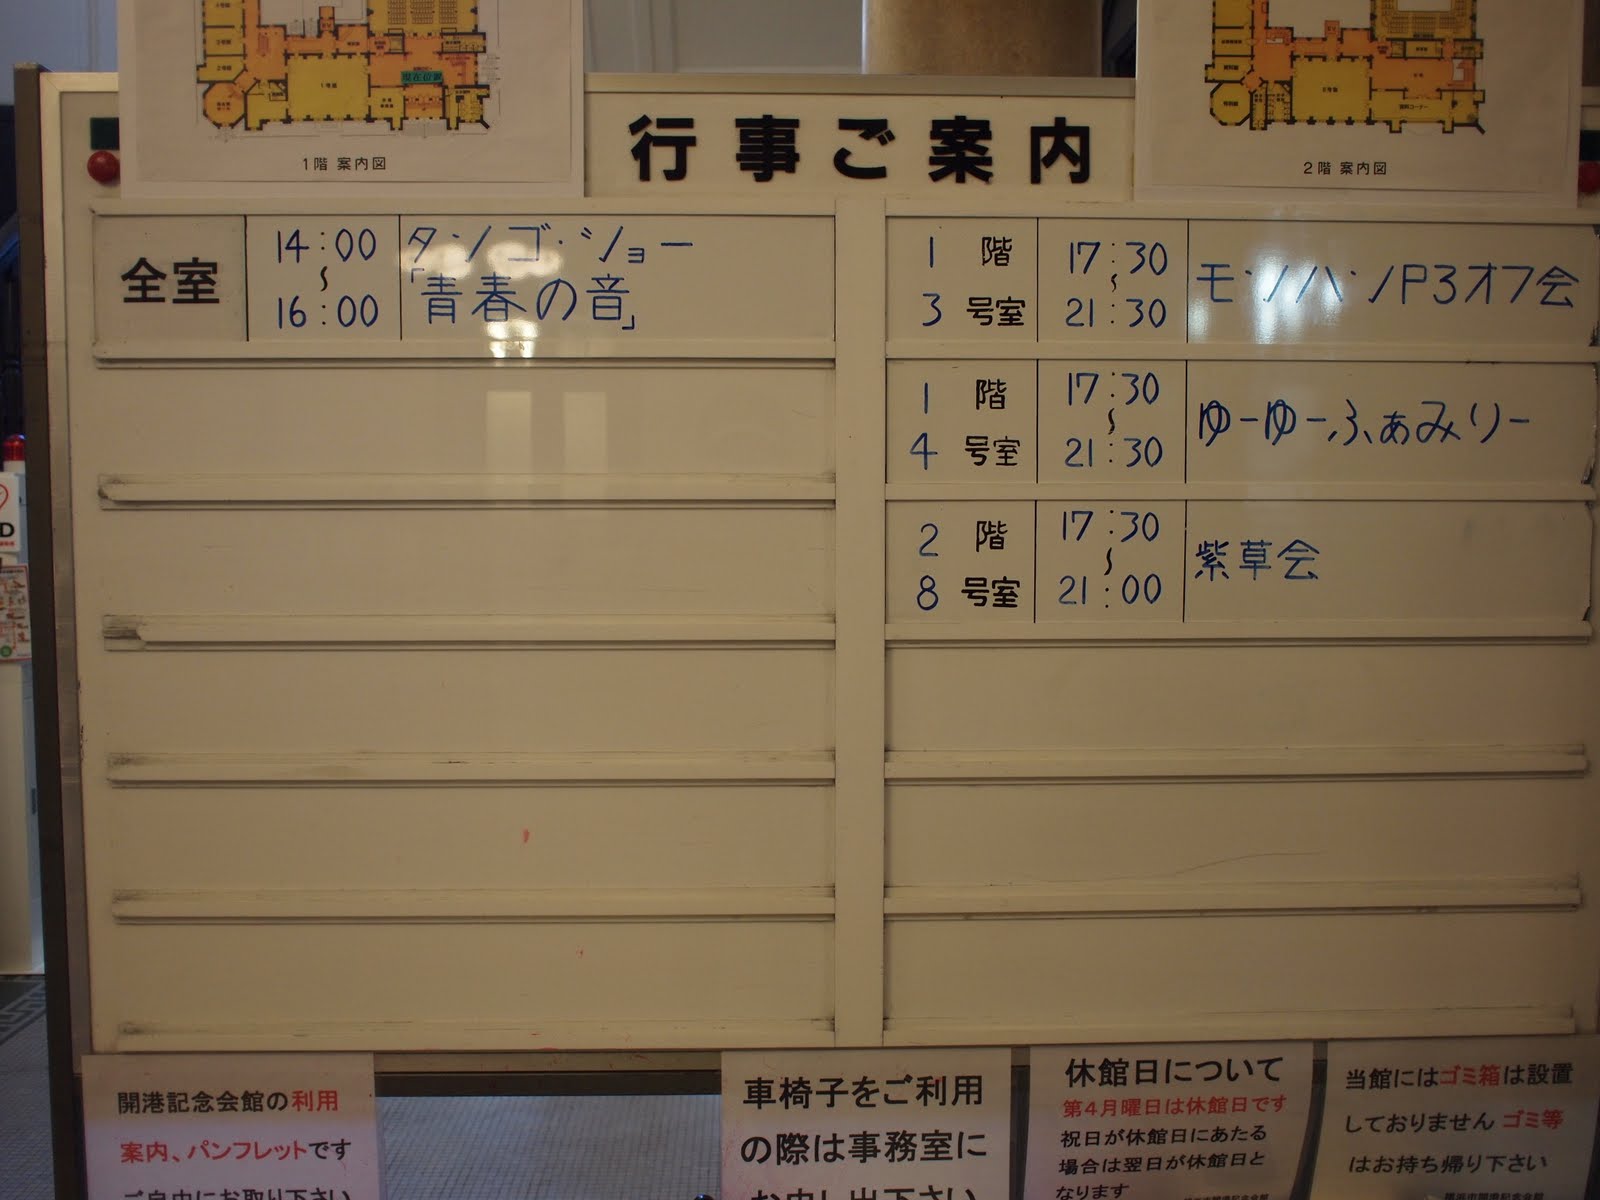 現在位置
1階 案内図
行事ご案内
2階 案内図
全室
14:00
〜
16:00
タンゴ・ショー
「青春の音」
1 階
3 号室
17:30
〜
21:30
モンハンP3オフ会
1 階
4 号室
17:30
〜
21:30
ゆーゆーふぁみりー
2 階
8 号室
17:30
〜
21:00
紫草会
開港記念会館の利用
案内、パンフレットです
ご自由にお取り下さい
車椅子をご利用
の際は事務室に
お申し出下さい
休館日について
第4月曜日は休館日です
祝日が休館日にあたる
場合は翌日が休館日と
なります
当館にはゴミ箱は設置
しておりません ゴミ等
はお持ち帰り下さい